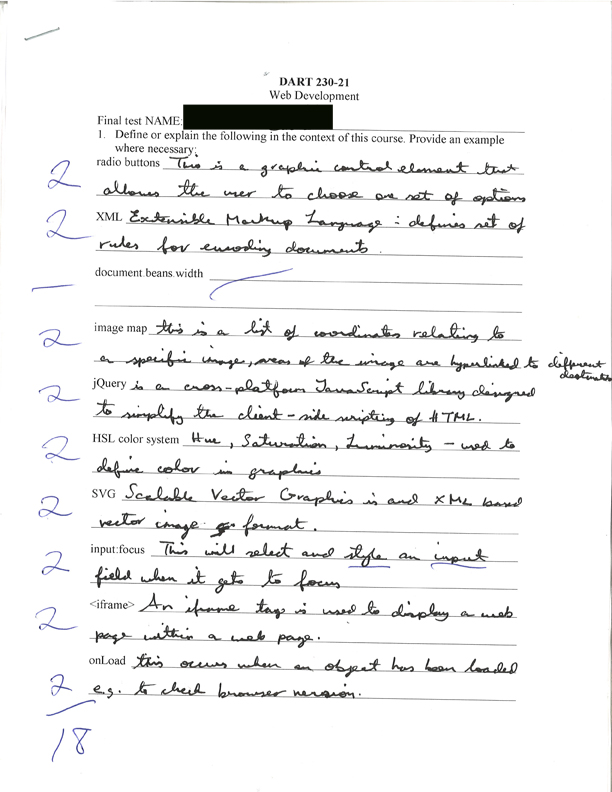 DART 230-21
Web Development
Final test NAME:
1. Define or explain the following in the context of this course. Provide an example
where necessary:
2 radio buttons This is a graphic control element that
allows the user to choose one set of options
2 XML Extensible Markup Language : defines set of
rules for encoding documents.
— document.beans.width
2 image map this is a list of coordinates relating to
a specific image, areas of the image are hyperlinked to different
2 jQuery is a cross-platform JavaScript library designed
to simplify the client-side scripting of HTML.
2 HSL color system Hue, Saturation, Luminosity - used to
define color in graphics
2 SVG Scalable Vector Graphics is and XML based
vector image format.
2 input:focus This will select and style an input
field when it gets to focus
2 <iframe> An iframe tag is used to display a web
page within a web page.
2 onLoad this occurs when an object has been loaded
e.g. to check browser version.
/18